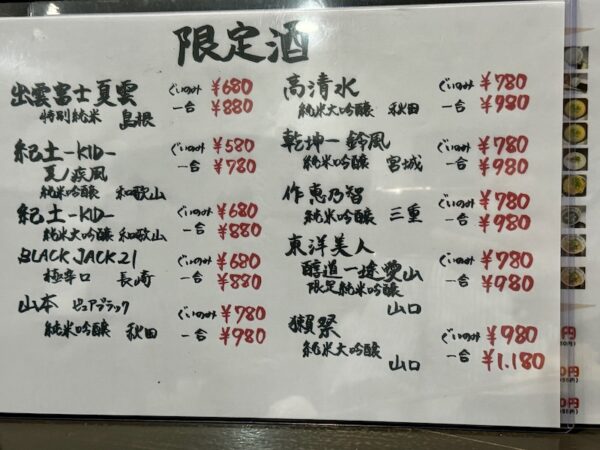 限定酒
出雲富士 夏雲 ぐいのみ ¥680
特別純米 島根 一合 ¥880
紀土-KID- ぐいのみ ¥580
夏ノ疾風 一合 ¥780
純米吟醸 和歌山
紀土-KID- ぐいのみ ¥680
純米大吟醸 和歌山 一合 ¥880
BLACK JACK 21 ぐいのみ ¥680
極辛口 長崎 一合 ¥880
山本 ピュアブラック ぐいのみ ¥780
純米吟醸 秋田 一合 ¥980
高清水 ぐいのみ ¥780
純米大吟醸 秋田 一合 ¥980
乾坤一 鈴風 ぐいのみ ¥780
純米吟醸 宮城 一合 ¥980
作 恵乃智 ぐいのみ ¥780
純米吟醸 三重 一合 ¥980
東洋美人 ぐいのみ ¥780
醇道一途 愛山 一合 ¥980
限定純米吟醸
山口
獺祭 ぐいのみ ¥980
純米大吟醸 一合 ¥1.180
山口
円
0円
0円